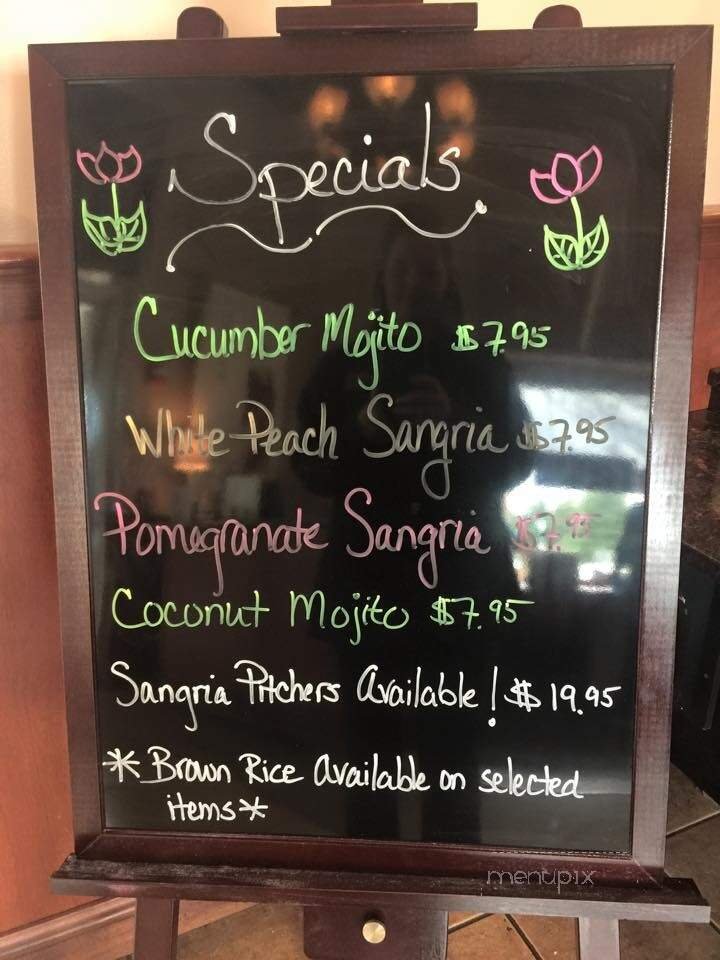 Specials
Cucumber Mojito $7.95
White Peach Sangria $7.95
Pomegranate Sangria $7.95
Coconut Mojito $7.95
Sangria Pitchers Available! $19.95
*Brown Rice Available on selected
items*
menupix